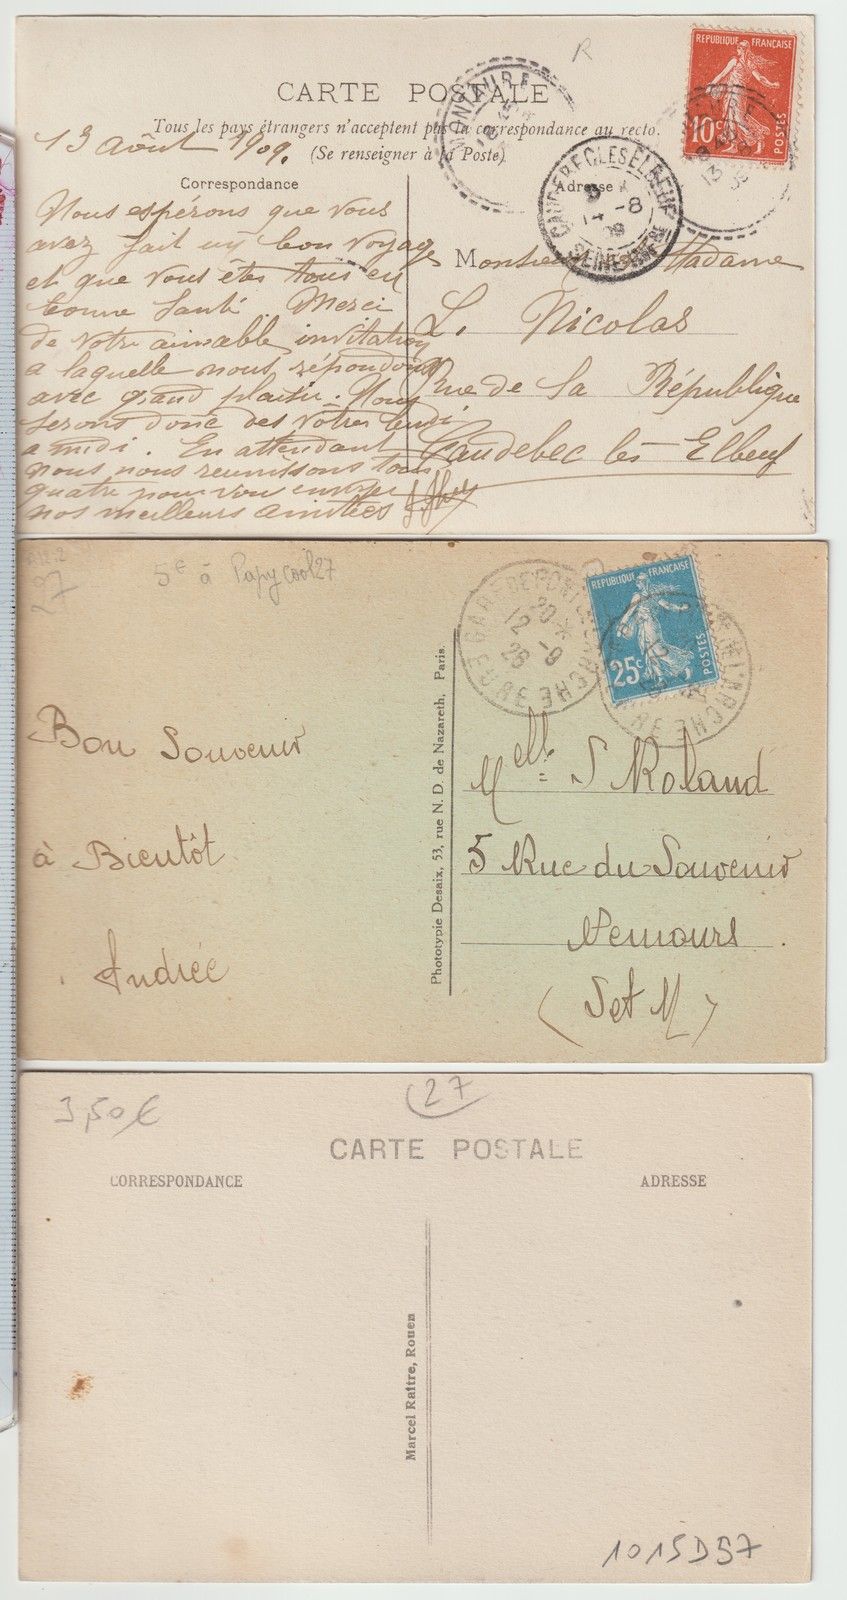 R
RÉPUBLIQUE FRANÇAISE
10c
POSTES
CARTE POSTALE
Tous les pays étrangers n'acceptent pas la correspondance au recto.
(Se renseigner à la Poste)
13 août 1909.
Correspondance
Adresse
MONTAURE
CAUDEBEC LES ELBEUF
14 -8
09
SEINE INFRE
13
Nous espérons que vous
avez fait un bon voyage
et que vous êtes tous en
bonne santé Merci
de votre aimable invitation
a laquelle nous répondons
avec grand plaisir. Nous
serons donc des votres lundi
a midi. En attendant
nous nous reunissons tous
quatre pour vous envoyer
nos meilleurs amitiés
Monsieur et Madame
L. Nicolas
Rue de la République
Caudebec les Elbeuf
27
5€ à Papycool27
RÉPUBLIQUE FRANÇAISE
25c
POSTES
GARE DE PONT DE L'ARCHE
EURE
20 *
12 -9
26
Bon Souvenir
à Bientôt
Andrée
Phototypie Desaix, 53, rue N. D. de Nazareth, Paris.
Melle S Roland
5 Rue du Souvenir
Nemours.
(S et M)
3,50€
27
CARTE POSTALE
CORRESPONDANCE
ADRESSE
Marcel Raître, Rouen
1015D57